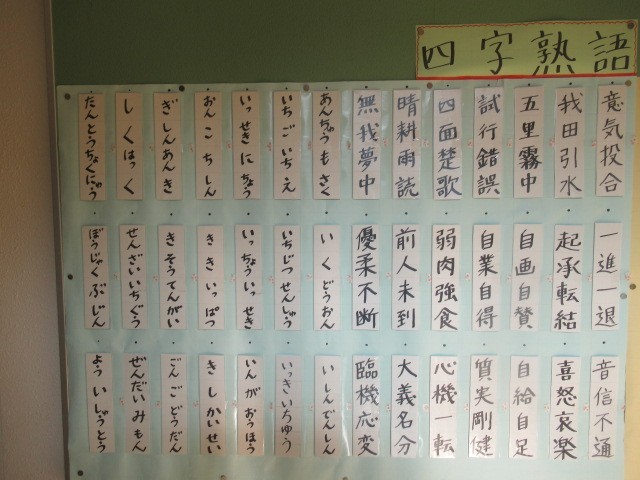 四字熟語
意気投合
我田引水
五里霧中
試行錯誤
四面楚歌
晴耕雨読
無我夢中
あんちゅうもさく
いちごいちえ
いっせきにちょう
おんこちしん
ぎしんあんき
しくはっく
たんとうちょくにゅう
一進一退
起承転結
自画自賛
自業自得
弱肉強食
前人未到
優柔不断
いくどうおん
いちじつせんしゅう
いっちょういっせき
ききいっぱつ
きそうてんがい
せんざいいちぐう
ぼうじゃくぶじん
音信不通
喜怒哀楽
自給自足
質実剛健
心機一転
大義名分
臨機応変
いしんでんしん
いっきいちゆう
いんがおうほう
きしかいせい
ごんごどうだん
ぜんだいみもん
よういしゅうとう